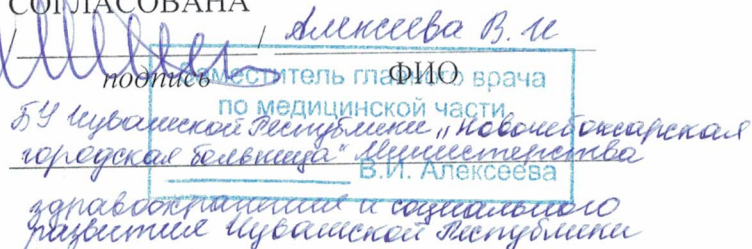 СОГЛАСОВАНА
/ / Алексеева В. И
подпись ФИО
Заместитель главного врача
по медицинской части
БУ Чувашской Республики „Новочебоксарская
городская больница" Министерства
В.И. Алексеева
здравоохранения и социального
развития Чувашской Республики